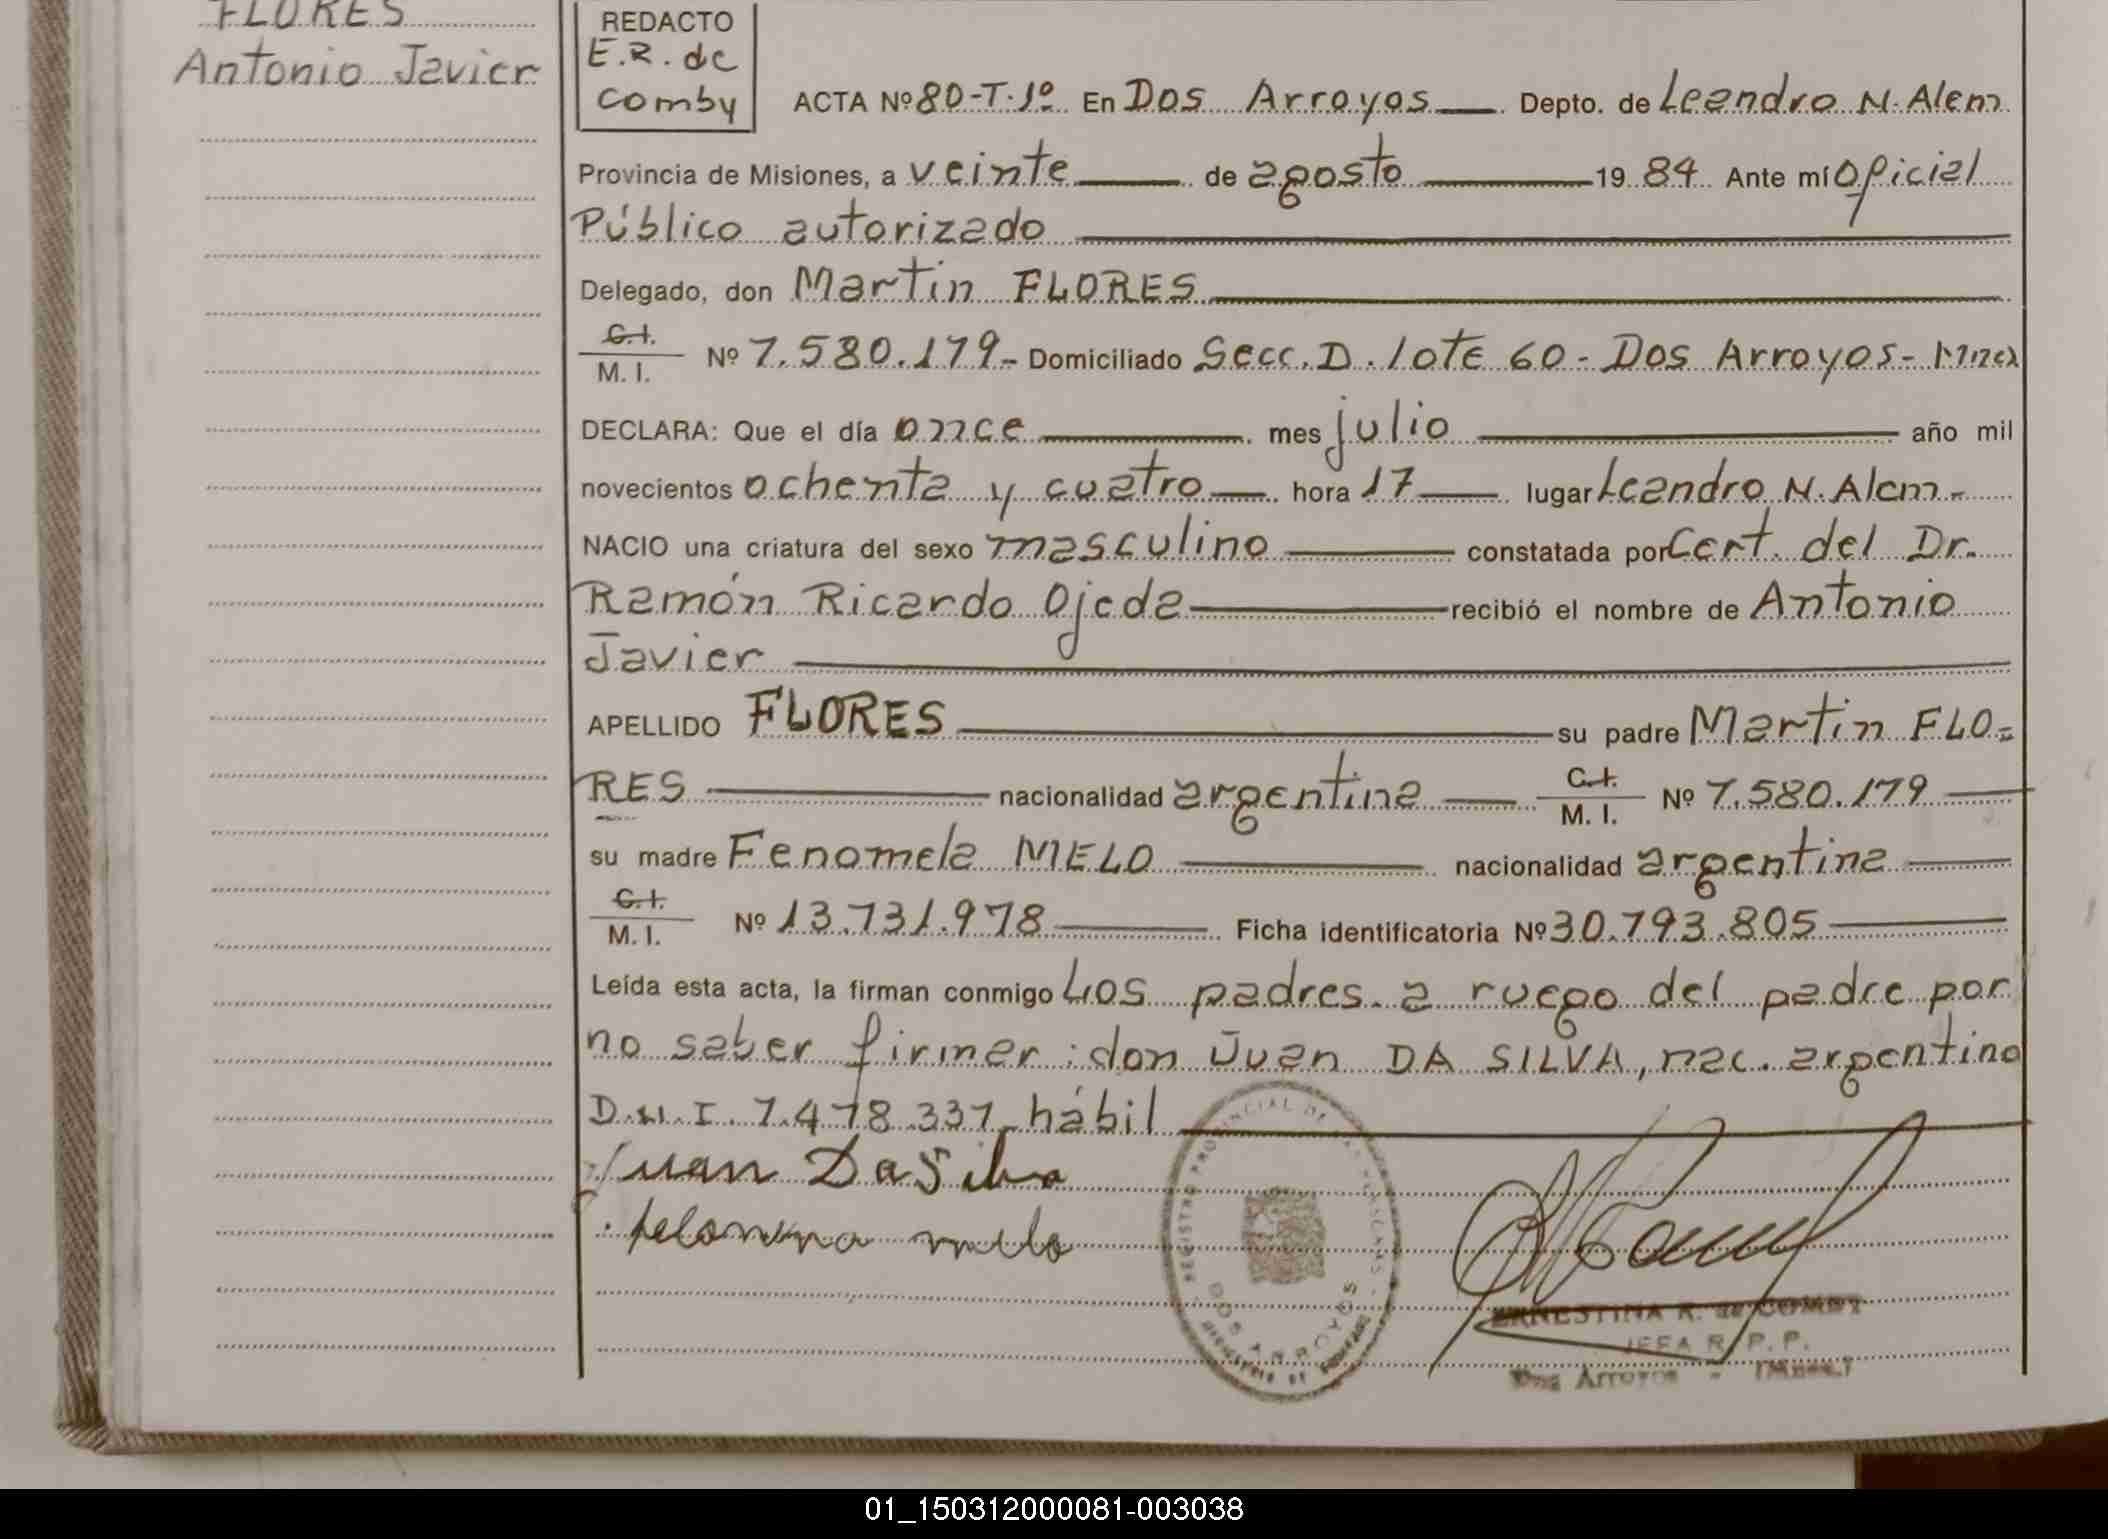 FLORES
Antonio Javier
REDACTO
E.R. de
Comby
ACTA Nº 80-T.1º En Dos Arroyos Depto. de Leandro N. Alem
Provincia de Misiones, a veinte de agosto 19 84 Ante mí Oficial
Público autorizado
Delegado, don Martin FLORES
C.I.
M. I.
Nº 7.580.179.- Domiciliado Secc. D. lote 60- Dos Arroyos-
DECLARA: Que el día once mes julio año mil
novecientos ochenta y cuatro hora 17 lugar Leandro N. Alem.-
NACIO una criatura del sexo masculino constatada por Cert. del Dr.
Ramón Ricardo Ojeda recibió el nombre de Antonio
Javier
APELLIDO FLORES su padre Martin FLO=
RES nacionalidad argentina C.I. M. I. Nº 7.580.179
su madre Fenomela MELO nacionalidad argentina
C.I.
M. I.
Nº 13.731.978 Ficha identificatoria Nº 30.793.805
Leída esta acta, la firman conmigo Los padres. a ruego del padre por
no saber firmar: don Juan DA SILVA, nac. argentino
D.N.I. 7.478.337 hábil
Juan Da Silva
melo
REGISTRO PROVINCIAL DE LAS PERSONAS
DOS ARROYOS
ERNESTINA R. de COMBY
JEFA R.P.P.
Dos Arroyos - (Mnes.)
01_150312000081-003038